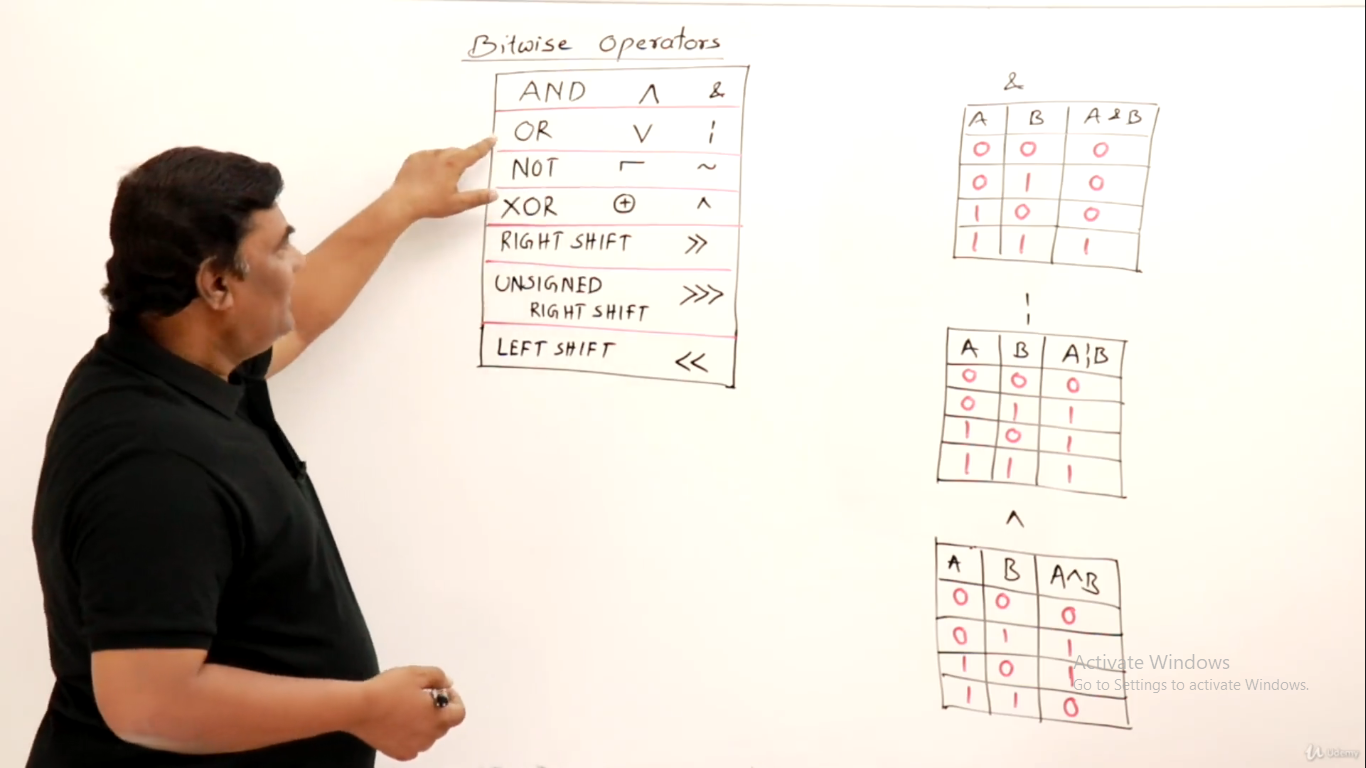 Bitwise Operators
AND ∧ &
OR ∨ ¦
NOT ¬ ~
XOR ⊕ ^
RIGHT SHIFT >>
UNSIGNED
RIGHT SHIFT >>>
LEFT SHIFT <<
&
A B A & B
0 0 0
0 1 0
1 0 0
1 1 1
¦
A B A¦B
0 0 0
0 1 1
1 0 1
1 1 1
^
A B A^B
0 0 0
0 1 1
1 0 1
1 1 0
Activate Windows
Go to Settings to activate Windows.
Udemy